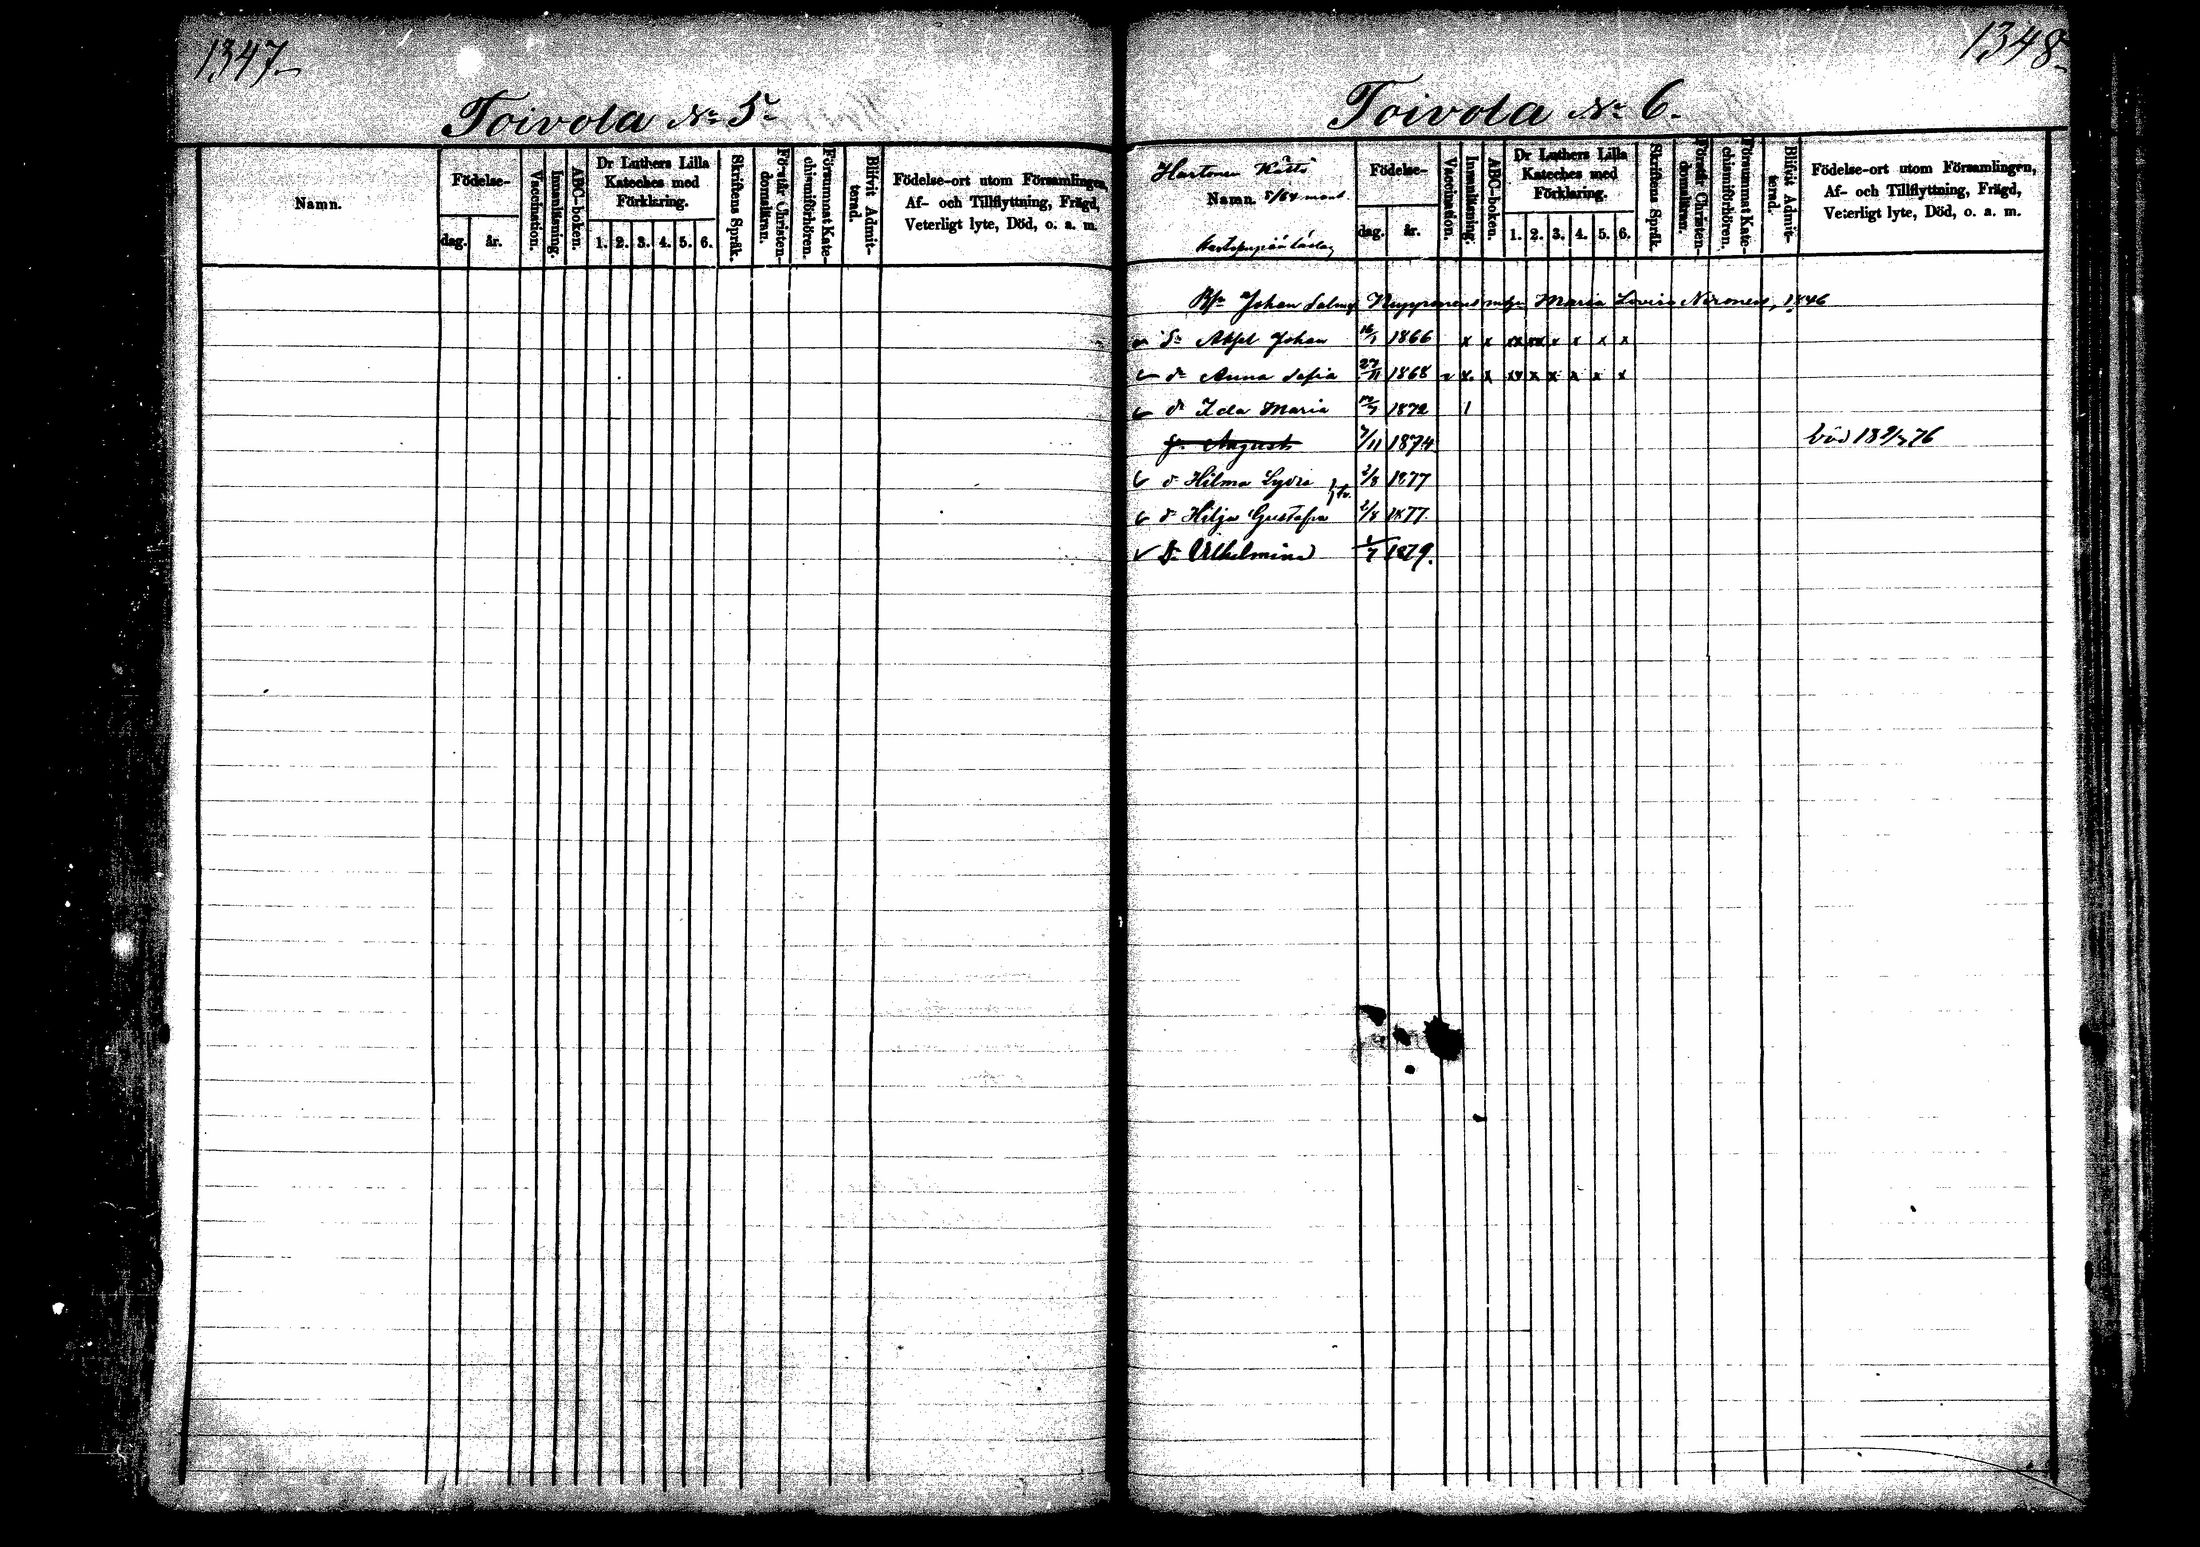 1347
Toivola No 5
Namn.
Födelse-
dag. år.
Vaccination.
Innanläsning.
ABC-boken.
Dr Luthers Lilla
Kateches med
Förklaring.
1. 2. 3. 4. 5. 6.
Skriftens Språk.
Förstår Christen-
domsläran.
Försummat Kate-
chismiförhören.
Blifvit Admit-
terad.
Födelse-ort utom Församlingen,
Af- och Tillflyttning, Frägd,
Veterligt lyte, Död, o. a. m.
1348
Toivola No 6.
Hartonen
Namn. 5/64
Födelse-
dag. år.
Vaccination.
Innanläsning.
ABC-boken.
Dr Luthers Lilla
Kateches med
Förklaring.
1. 2. 3. 4. 5. 6.
Skriftens Språk.
Förstår Christen-
domsläran.
Försummat Kate-
chismiförhören.
Blifvit Admit-
terad.
Födelse-ort utom Församlingen,
Af- och Tillflyttning, Frägd,
Veterligt lyte, Död, o. a. m.
Johan Maria Lovisa 1846
Sn Axel Johan 1866 x x xx xx x x x x
dr Anna Sofia 27/11 1868 x x xx x x x x x
dr Ida Maria 1872 1
Sn August 7/11 1874 död 76
dr Hilma Lydia 2/8 1877
dr Hilja Gustafva 2/8 1877
Dr Vilhelmina 1879.